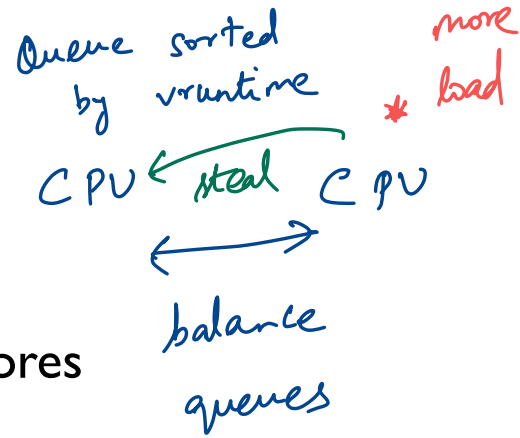 Queue sorted
by vruntime
more
* load
CPU steal CPU
balance
ores
queues